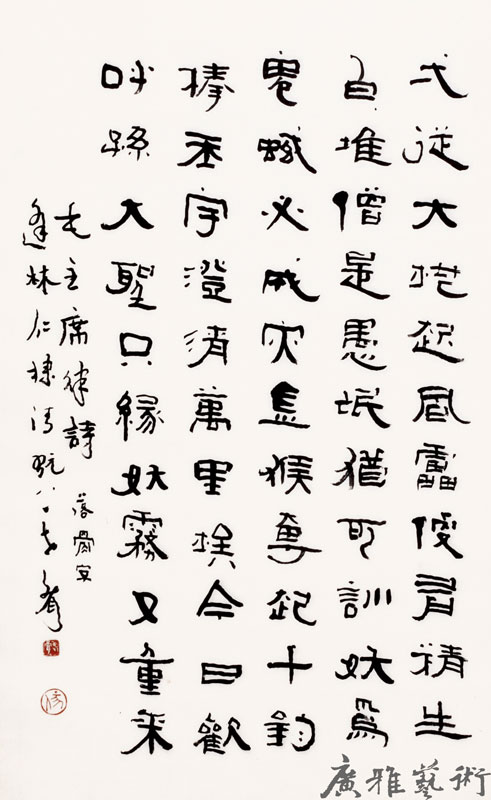 弌從大地起風靁便有精生
白堆僧是愚氓猶可訓妖爲
鬼蜮必成灾金猴奮起千鈞
棒玉宇澄清萬里埃今日歡
呼孫大聖只緣妖霧又重來
毛主席律詩 落骨字
逢林仁棣清玩
廣雅藝術